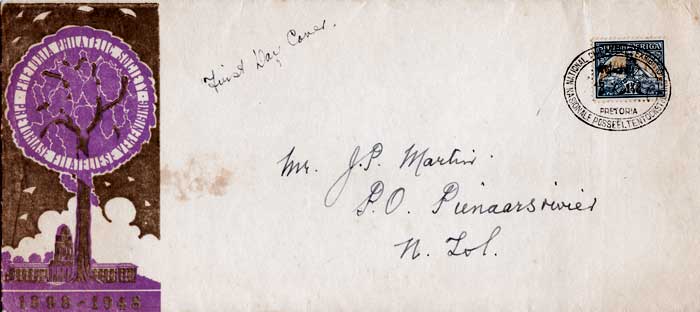 PRETORIA PHILATELIC SOCIETY
PRETORIASE FILATELIESE VERENIGING
First Day Cover.
SUID-AFRIKA
NATIONAL
PRETORIA
NASIONALE POSSEËLTENTOONSTELLING
Mr. J.P. Martin.
P.O. Pienaarsrivier
N. Tvl.